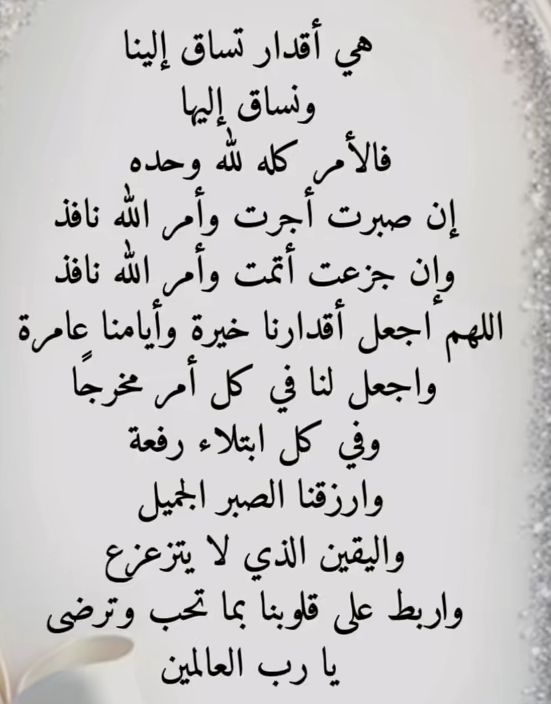 هي أقدار تساق إلينا
ونساق إليها
فالأمر كله لله وحده
إن صبرت أجرت وأمر الله نافذ
وإن جزعت أتمت وأمر الله نافذ
اللهم اجعل أقدارنا خيرة وأيامنا عامرة
واجعل لنا في كل أمر مخرجًا
وفي كل ابتلاء رفعة
وارزقنا الصبر الجميل
واليقين الذي لا يتزعزع
واربط على قلوبنا بما تحب وترضى
يا رب العالمين